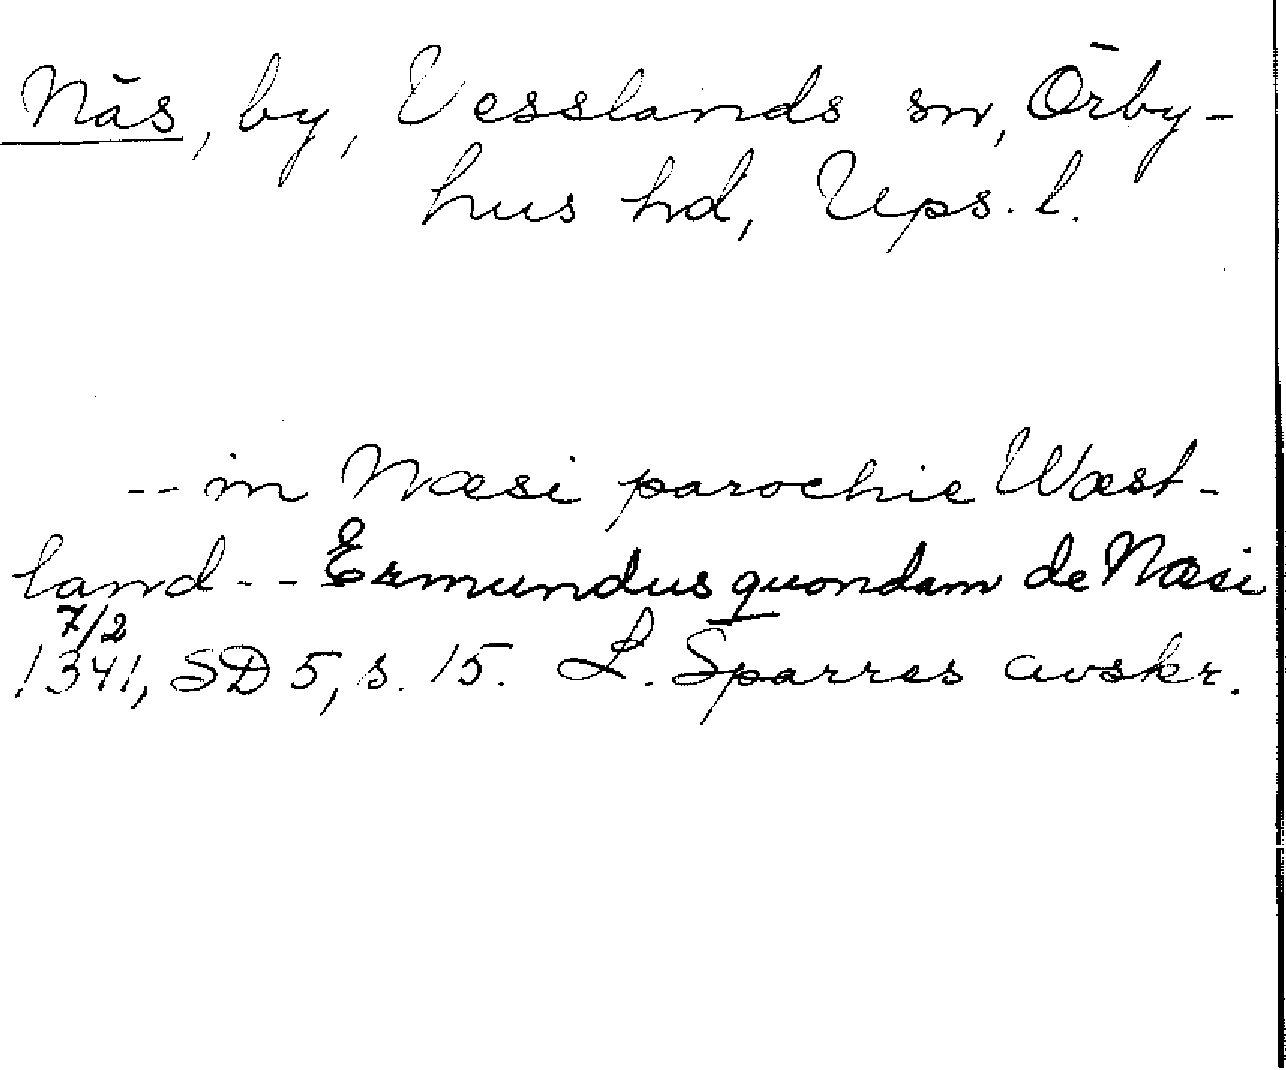 Näs, by, Vesslands sn, Örby-
hus hd, Ups. l.
-- in Næsi parochie Wæst-
land -- Ermundus quondam de Næsi
7/2
1341, SD 5, s. 15. L. Sparres avskr.